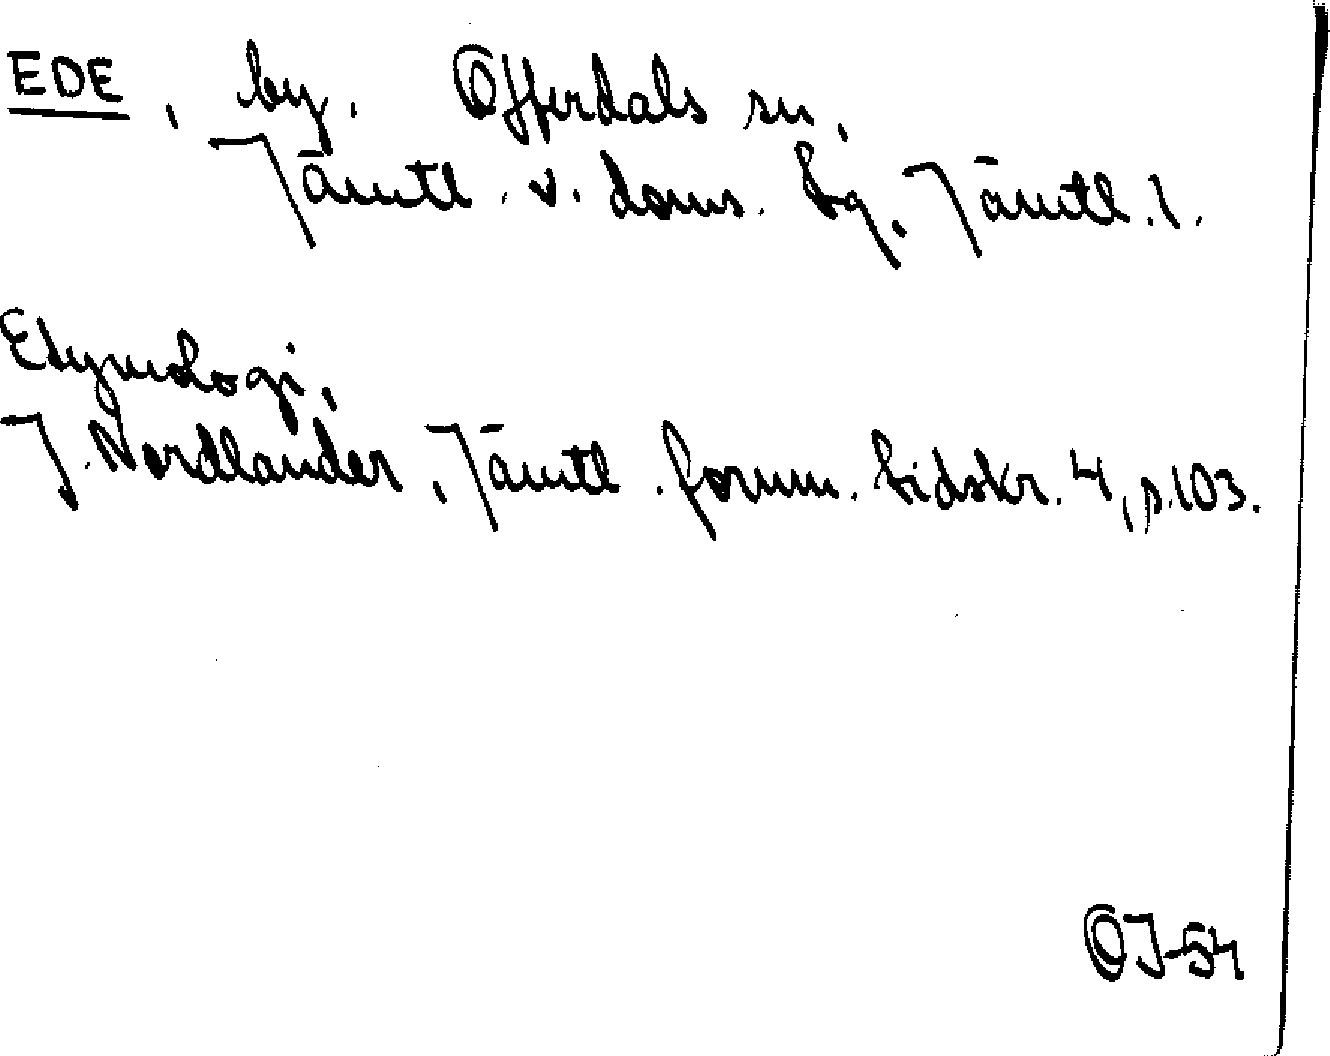 EDE, by. Offerdals sn,
Jämtl. v. doms. tg, Jämtl. l.
Etymologi,
J. Nordlander, Jämtl. fornm. tidskr. 4, s. 103.
OJ-54